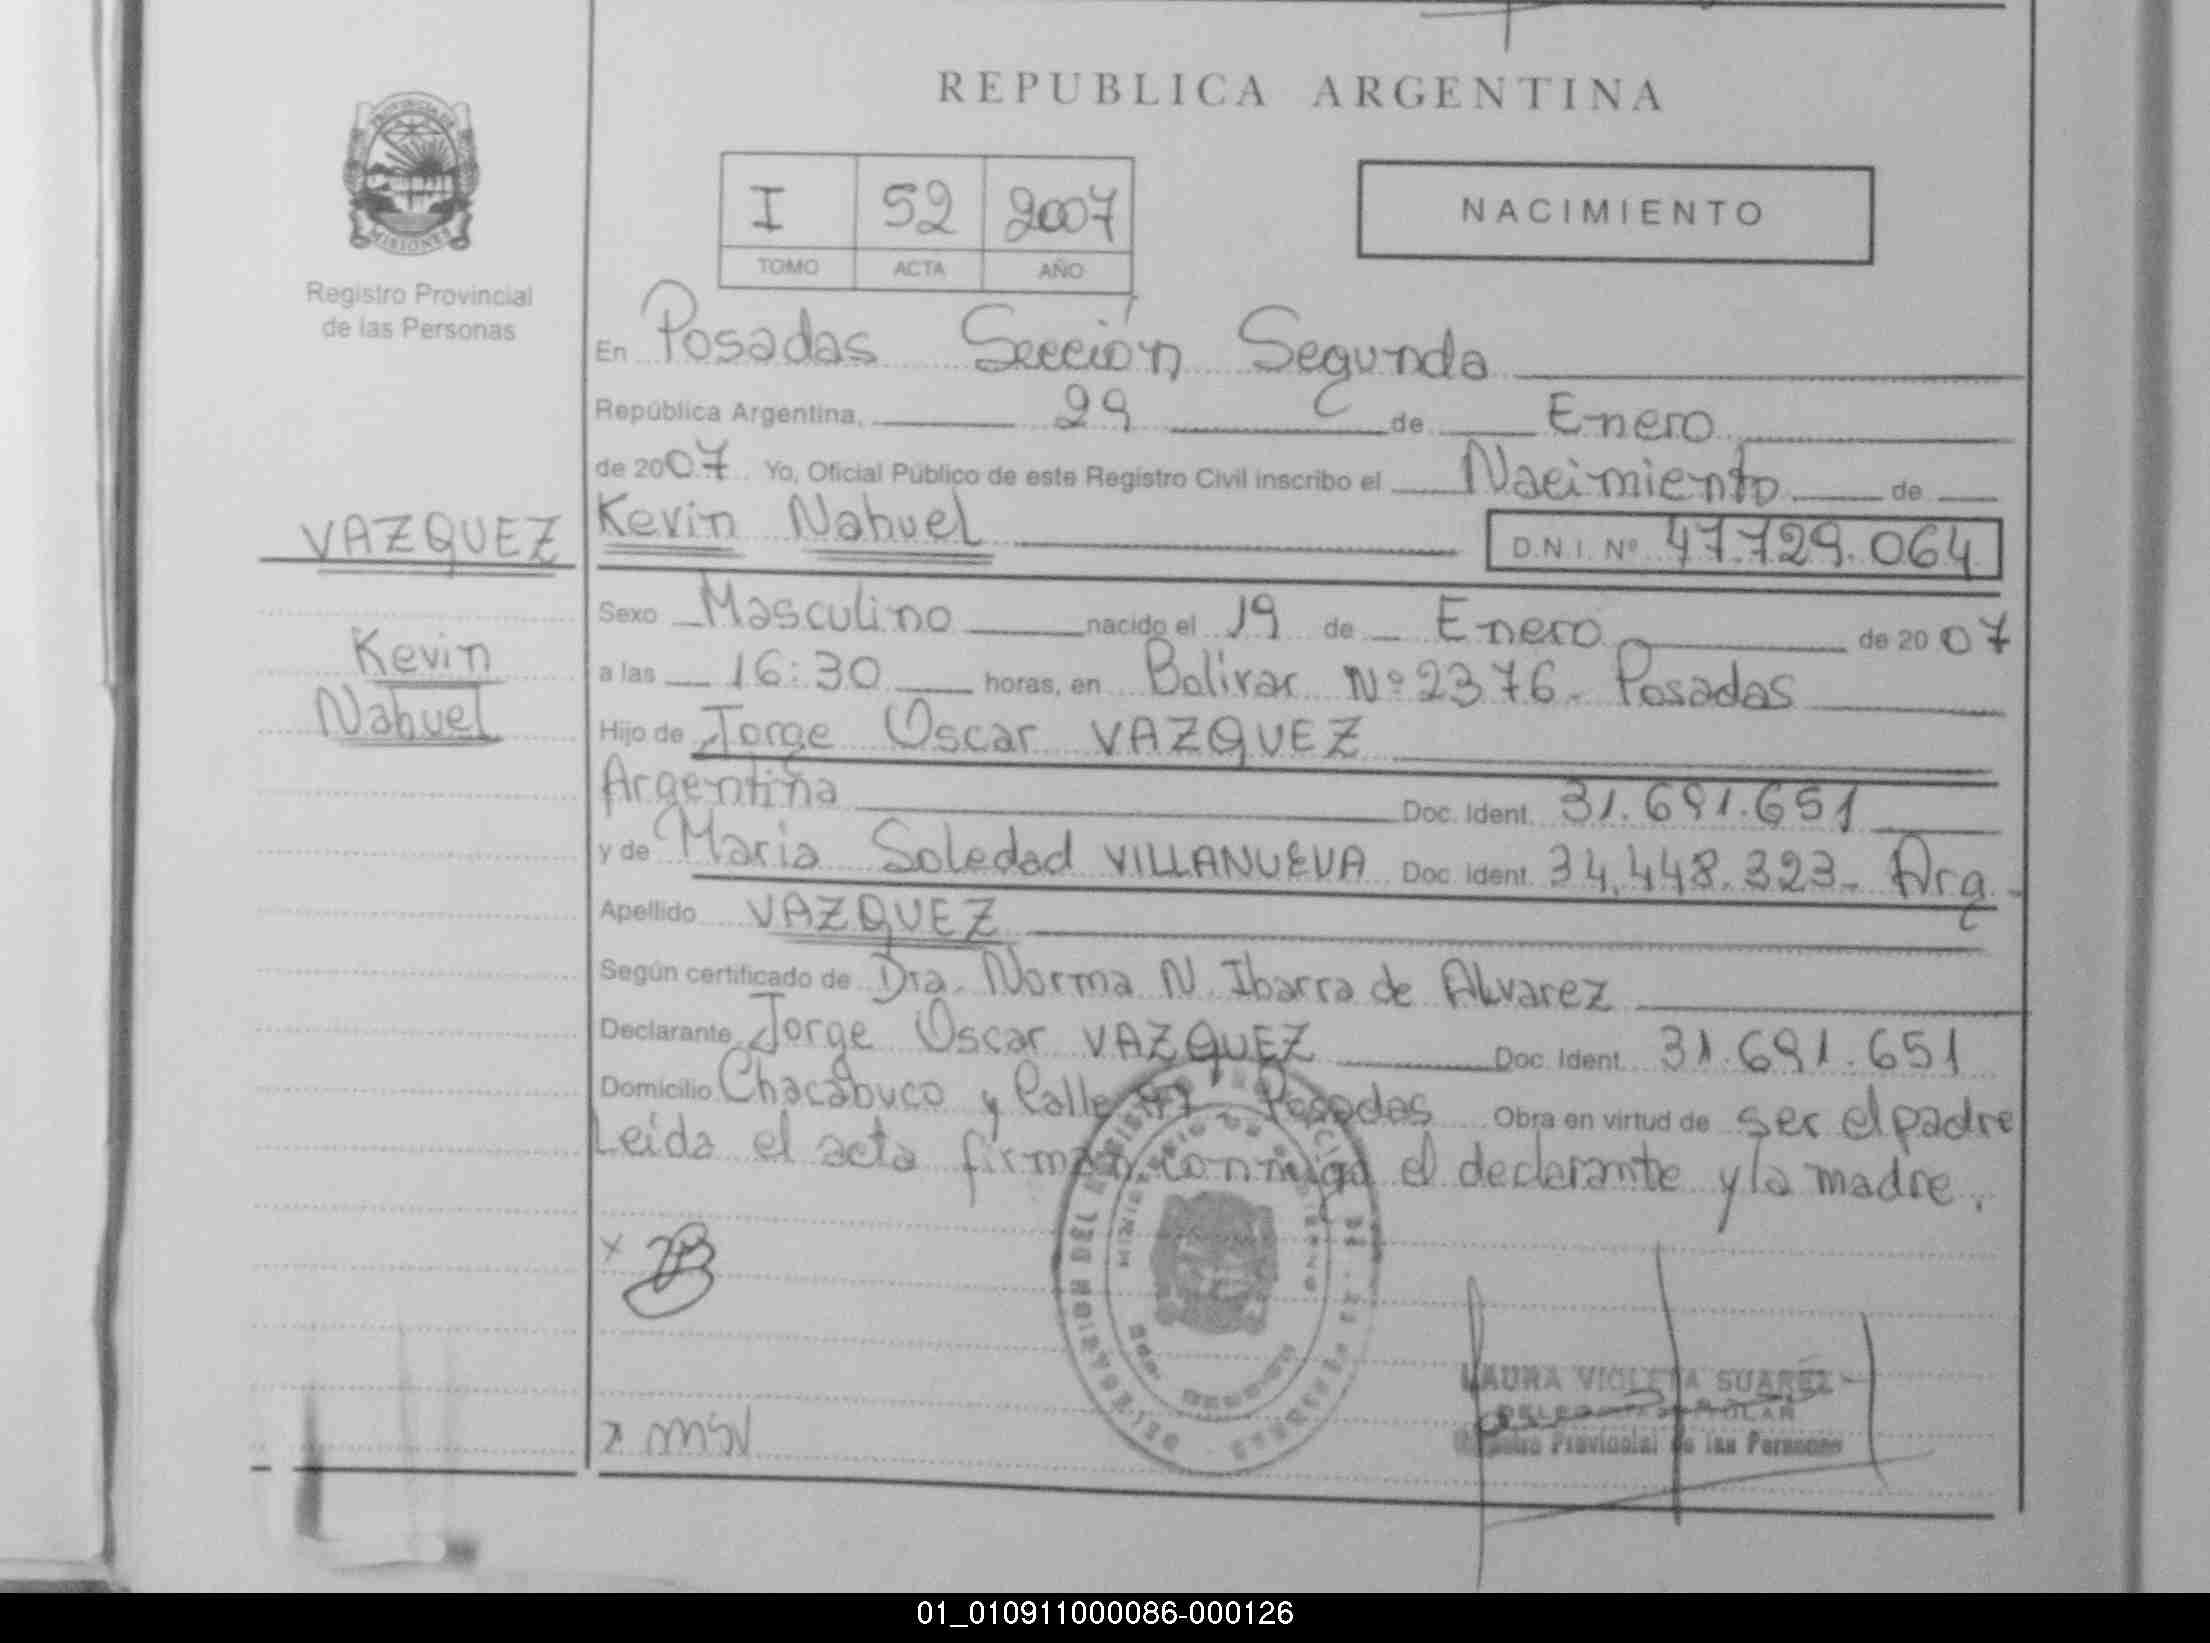 REPUBLICA ARGENTINA
PROVINCIA DE
MISIONES
Registro Provincial
de las Personas
I 52 2007
TOMO ACTA AÑO
NACIMIENTO
En Posadas Sección Segunda
República Argentina, 29 de Enero
de 2007 Yo, Oficial Público de este Registro Civil inscribo el Nacimiento de
VAZQUEZ
Kevin Nahuel D.N.I. Nº 47.729.064
Kevin
Nahuel
Sexo Masculino nacido el 19 de Enero de 2007
a las 16:30 horas, en Bolivar Nº 2376 - Posadas
Hijo de Jorge Oscar VAZQUEZ
Argentina Doc. Ident. 31.691.651
y de Maria Soledad VILLANUEVA Doc. Ident. 34.448.323- Arg.-
Apellido VAZQUEZ
Según certificado de Dra. Norma N. Ibarra de Alvarez
Declarante Jorge Oscar VAZQUEZ Doc. Ident. 31.691.651
Domicilio Chacabuco y Calle Posadas Obra en virtud de ser el padre
Leida el acta firman conmigo el declarante y la madre.
x
x MSV
LAURA VIOLETA SUAREZ
DELEGADA TITULAR
Registro Provincial de las Personas
01_010911000086-000126